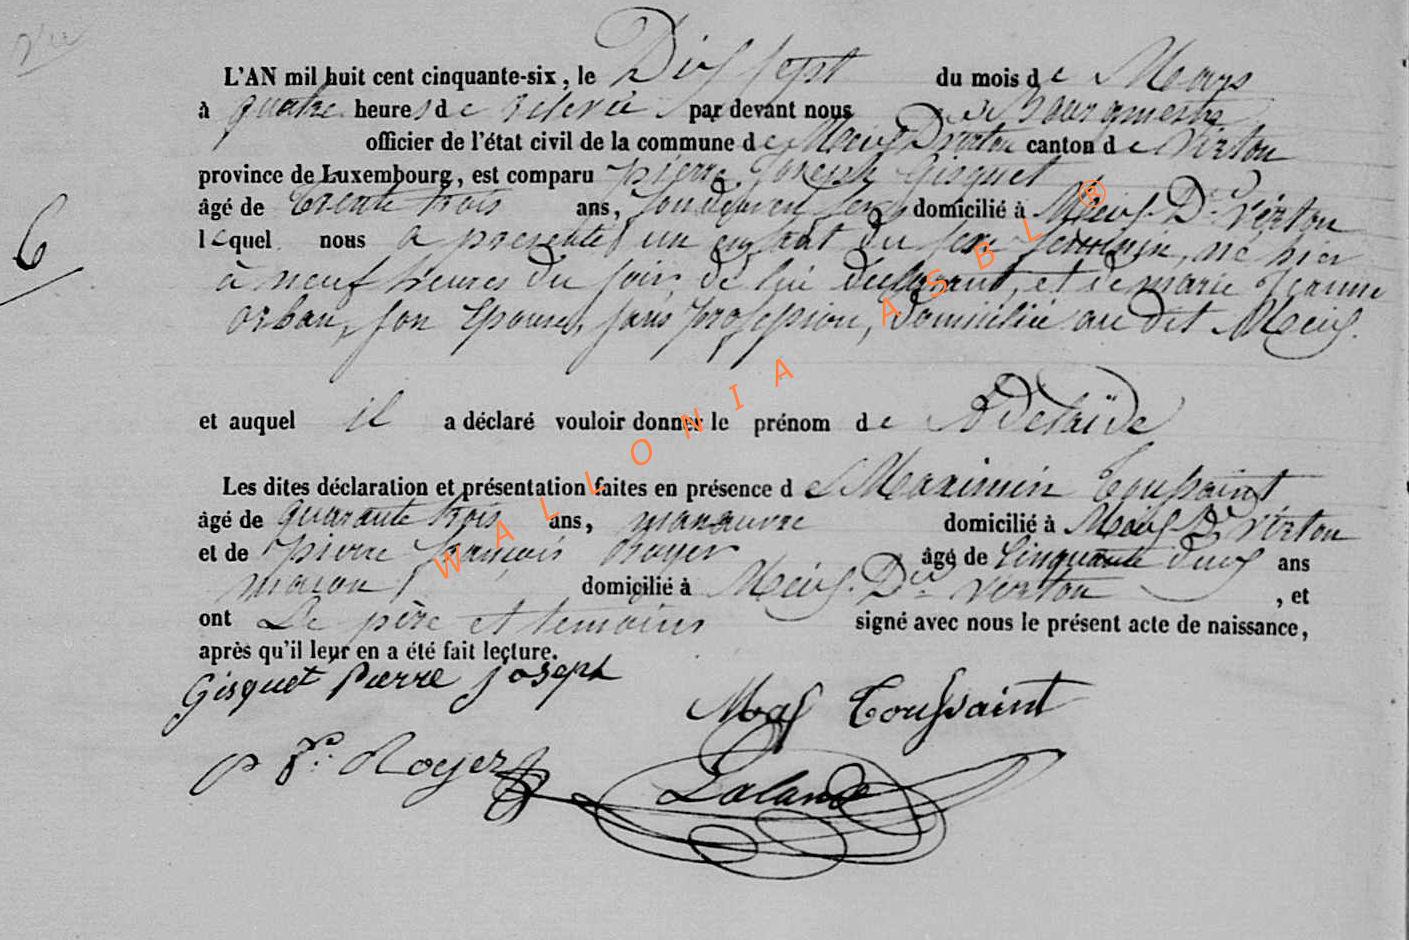 Vu
L'AN mil huit cent cinquante-six, le Dix sept du mois de Mars
à quatre heures de relevée par devant nous Bourgmestre
officier de l'état civil de la commune de Meix Dt Virton canton de Virton
province de Luxembourg, est comparu pierre Joseph Gisquet
âgé de trente trois ans, domicilié à Meix-Dt Virton
6
lequel nous a presenté un enfant du sexe feminin, né hier
à neuf heures du soir, de lui déclarant, et de marie Jeanne
orban, son Epouse, sans profession, domiciliée au dit Meix.
et auquel il a déclaré vouloir donner le prénom de Adelaïde
Les dites déclaration et présentation faites en présence de Maximin Toussaint
âgé de quarante trois ans, manœuvre domicilié à Meix Dt Virton
et de pierre françois Royer âgé de Cinquante deux ans
macon domicilié à Meix-Dt Virton , et
ont Le père et temoins signé avec nous le présent acte de naissance,
après qu'il leur en a été fait lecture.
Gisquet Pierre Joseph
Max Toussaint
p fr. Royer
Laland
WALLONIA ASBL ®